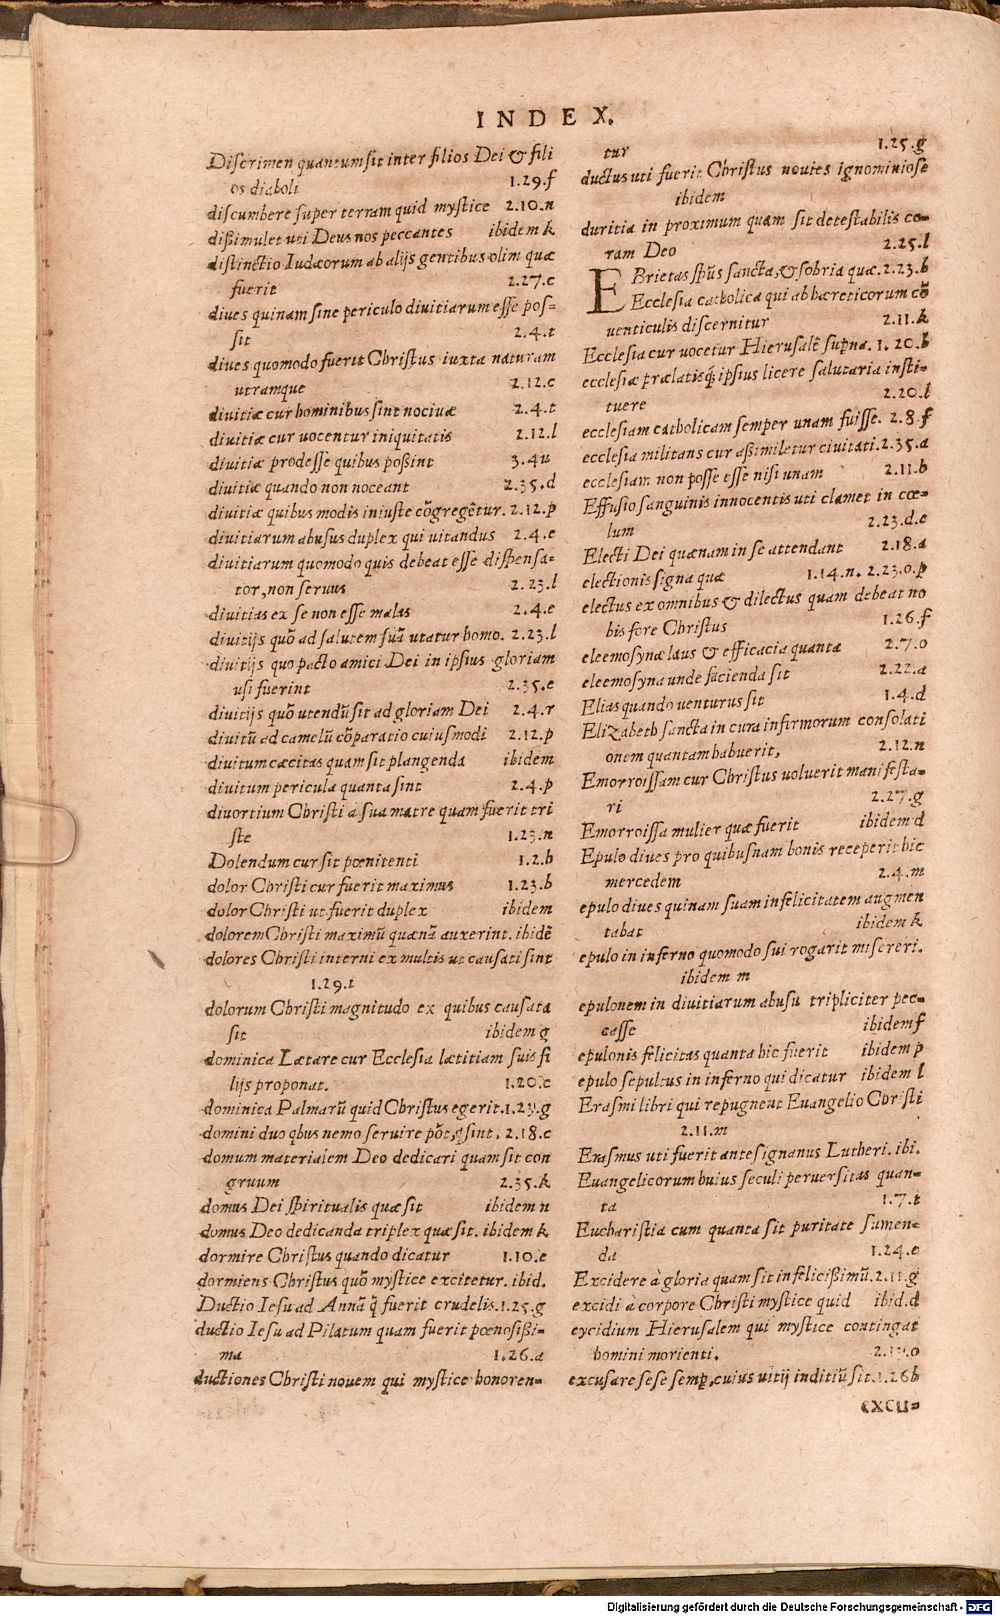 INDEX.
Discrimen quantum sit inter filios Dei & fili
os diaboli 1.29.f
discumbere super terram quid mystice 2.10.n
dißimulet uti Deus nos peccantes ibidem k
distinctio Iudæorum ab alijs gentibus olim quæ
fuerit 2.27.c
diues quinam sine periculo diuitiarum esse pos-
sit 2.4.t
diues quomodo fuerit Christus iuxta naturam
utramque 2.12.c
diuitiæ cur hominibus sint nociuæ 2.4.t
diuitiæ cur uocentur iniquitatis 2.12.l
diuitiæ prodesse quibus poßint 3.4u
diuitiæ quando non noceant 2.35.d
diuitiæ quibus modis iniuste cõgregẽtur. 2.12.p
diuitiarum abusus duplex qui uitandus 2.4.e
diuitiarum quomodo quis debeat esse dispensa-
tor, non seruus 2.23.l
diuitias ex se non esse malas 2.4.e
diuitijs quõ ad salutem suã utatur homo. 2.23.l
diuitijs quo pacto amici Dei in ipsius gloriam
usi fuerint 2.35.e
diuitijs quõ utendũ sit ad gloriam Dei 2.4.r
diuitũ ad camelũ cõparatio cuiusmodi 2.12.p
diuitum cæcitas quam sit plangenda ibidem
diuitum pericula quanta sint 2.4.p
diuortium Christi a sua matre quam fuerit tri
ste 1.23.n
Dolendum cur sit pœnitenti 1.2.b
dolor Christi cur fuerit maximus 1.23.b
dolor Christi ut fuerit duplex ibidem
dolorem Christi maximũ quænã auxerint. ibidẽ
dolores Christi interni ex multis ut causati sint
1.29.t
dolorum Christi magnitudo ex quibus causata
sit ibidem g
dominica Lætare cur Ecclesia lætitiam suis fi
lijs proponat. 1.20.c
dominica Palmarũ quid Christus egerit. 1.23.g
domini duo qbus nemo seruire põt, q sint. 2.18.c
domum materialem Deo dedicari quam sit con
gruum 2.35.k
domus Dei spiritualis quæ sit ibidem n
domus Deo dedicanda triplex quæ sit. ibidem k
dormire Christus quando dicatur 1.10.e
dormiens Christus quõ mystice excitetur. ibid.
Ductio Iesu ad Annã q̃ fuerit crudelis. 1.25.g
ductio Iesu ad Pilatum quam fuerit pœnosißi-
ma 1.26.a
ductiones Christi nouem qui mystice honoren-
tur 1.25.g
ductus uti fuerit Christus nouies ignominiose
ibidem
duritia in proximum quam sit detestabilis co-
ram Deo 2.25.l
EBrietas spũs sancta, & sobria quæ. 2.23.b
Ecclesia catholica qui ab hæreticorum cõ
uenticulis discernitur 2.11.k
Ecclesia cur uocetur Hierusalẽ supna. 1.20.b
ecclesiæ prælatisq; ipsius licere salutaria insti-
tuere 2.20.l
ecclesiam catholicam semper unam fuisse. 2.8.f
ecclesia militans cur aßimiletur ciuitati. 2.35.a
ecclesiam non posse esse nisi unam 2.11.b
Effusio sanguinis innocentis uti clamet in cœ-
lum 2.23.d.e
Electi Dei quænam in se attendant 2.18.a
electionis signa quæ 1.14.n. 2.23.o.p
electus ex omnibus & dilectus quam debeat no
bis fore Christus 1.26.f
eleemosynæ laus & efficacia quanta 2.7.o
eleemosyna unde facienda sit 2.22.a
Elias quando uenturus sit 1.4.d
Elizabeth sancta in cura infirmorum consolati
onem quantam habuerit, 2.12.n
Emorroissam cur Christus uoluerit manifesta-
ri 2.27.g
Emorroissa mulier quæ fuerit ibidem d
Epulo diues pro quibusnam bonis receperit hic
mercedem 2.4.m
epulo diues quinam suam infelicitatem augmen
tabat ibidem k
epulo in inferno quomodo sui rogarit misereri.
ibidem m
epulonem in diuitiarum abusu tripliciter pec-
casse ibidem f
epulonis felicitas quanta hic fuerit ibidem p
epulo sepultus in inferno qui dicatur ibidem l
Erasmi libri qui repugnent Euangelio Christi
2.11.m
Erasmus uti fuerit antesignanus Lutheri. ibi.
Euangelicorum huius seculi peruersitas quan-
ta 1.7.t
Eucharistia cum quanta sit puritate sumen-
da 1.24.e
Excidere à gloria quam sit infelicißimũ. 2.11.g
excidi à corpore Christi mystice quid ibid.d
eycidium Hierusalem qui mystice contingat
homini morienti. o
excusare sese semp, cuius uitij inditiũ sit. 1.26b
excu-
Digitalisierung gefördert durch die Deutsche Forschungsgemeinschaft - DFG